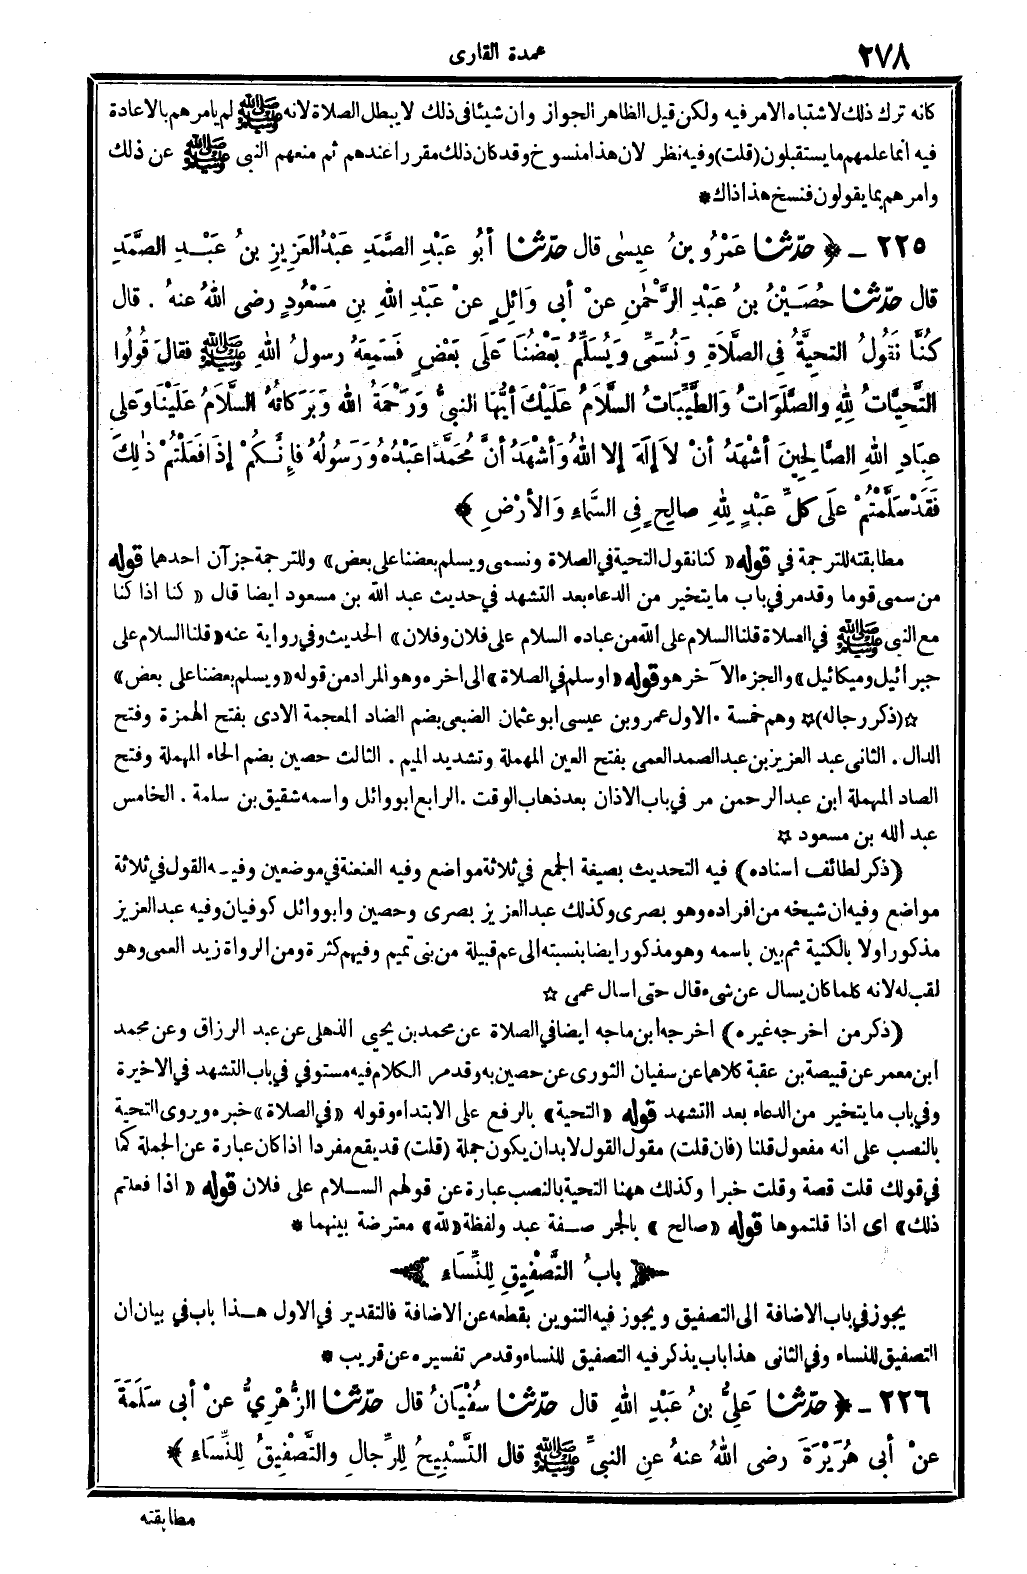 ٢٧٨
عمدة القارى
كانه ترك ذلك لاشتباه الامر فيه ولكن قيل الظاهر الجواز وان شيئا فى ذلك لا يبطل الصلاة لانه ﷺ لم يامرهم بالاعادة
فيه انما علمهم ما يستقبلون (قلت) وفيه نظر لان هذا منسوخ وقد كان ذلك مقررا عندهم ثم منعهم النبى ﷺ عن ذلك
وامرهم بما يقولون فنسخ هذا ذاك *
٢٢٥ ـ ﴿ حَدَّثنا عَمْرُو بنُ عِيسٰى قال حَدَّثنا أبُو عَبْدِ الصَّمَدِ عَبْدُ العَزِيزِ بنُ عَبْدِ الصَّمَدِ
قال حَدَّثنا حُصَيْنُ بنُ عَبْدِ الرَّحْمٰنِ عنْ أبى وَائِلٍ عنْ عَبْدِ اللهِ بنِ مَسْعُودٍ رضى اللهُ عنهُ . قال
كُنَّا نَقُولُ التحيَّةُ فِى الصَّلاَةِ وَنُسَمِّى وَيُسَلِّمُ بَعْضُنَا عَلَى بَعْضٍ فَسَمِعَهُ رسولُ اللهِ ﷺ فقالَ قُولُوا
التَّحِيَّاتُ لِلّٰهِ والصَّلَوَاتُ وَالطَّيِّبَاتُ السَّلاَمُ عَلَيْكَ أيُّهَا النبىُّ وَرَحْمَةُ اللهِ وَبَرَكاتُهُ السَّلاَمُ عَلَيْنَا وَعَلى
عِبَادِ اللهِ الصَّالِحِينَ أشْهَدُ أنْ لاَ إلَهَ إلا اللهُ وَأشْهَدُ أنَّ مُحَمَّدًا عَبْدُهُ وَرَسُولُهُ فإنَّكُمْ إذَا فَعَلْتُمْ ذٰلِكَ
فَقَدْ سَلَّمْتُمْ عَلَى كلِّ عَبْدٍ لِلّٰهِ صالِحٍ فِى السَّماءِ وَالأرْضِ ﴾
مطابقته للترجمة في قوله «كنا نقول التحية فى الصلاة ونسمى ويسلم بعضنا على بعض» وللترجمة جزآن احدهما قوله
من سمى قوما وقد مر فى باب ما يتخير من الدعاء بعد التشهد فى حديث عبد الله بن مسعود ايضا قال « كنا اذا كنا
مع النبى ﷺ فى الصلاة قلنا السلام على الله من عباده السلام على فلان وفلان» الحديث وفى رواية عنه «قلنا السلام على
جبرائيل وميكائيل» والجزء الآخر هو قوله «او سلم فى الصلاة» الى اخره وهو المراد من قوله «ويسلم بعضنا على بعض»
☆(ذكر رجاله)☆ وهم خمسة . الاول عمرو بن عيسى ابو عثمان الضبعى بضم الضاد المعجمة الادى بفتح الهمزة وفتح
الدال . الثانى عبد العزيز بن عبد الصمد العمى بفتح العين المهملة وتشديد الميم . الثالث حصين بضم الحاء المهملة وفتح
الصاد المهملة ابن عبد الرحمن مر فى باب الاذان بعد ذهاب الوقت . الرابع ابو وائل واسمه شقيق بن سلمة . الخامس
عبد الله بن مسعود ☆
(ذكر لطائف اسناده) فيه التحديث بصيغة الجمع في ثلاثة مواضع وفيه العنعنة فى موضعين وفيـه القول فى ثلاثة
مواضع وفيه ان شيخه من افراده وهو بصرى وكذلك عبد العزيز بصرى وحصين وابو وائل كوفيان وفيه عبد العزيز
مذكور اولا بالكنية ثم بين باسمه وهو مذكور ايضا بنسبته الى عم قبيلة من بنى تميم وفيهم كثرة ومن الرواة زيد العمى وهو
لقب له لانه كلما كان يسال عن شىء قال حتى اسال عمى ☆
(ذكر من اخرجه غيره) اخرجه ابن ماجه ايضا فى الصلاة عن محمد بن يحيى الذهلى عن عبد الرزاق وعن محمد
ابن معمر عن قبيصة بن عقبة كلاهما عن سفيان الثورى عن حصين به وقد مر الكلام فيه مستوفي فى باب التشهد فى الاخيرة
وفى باب ما يتخير من الدعاء بعد التشهد قوله «التحية» بالرفع على الابتداء وقوله «فى الصلاة» خبره وروى التحية
بالنصب على انه مفعول قلنا (فان قلت) مقول القول لا بد ان يكون جملة (قلت) قد يقع مفردا اذا كان عبارة عن الجملة كما
فى قولك قلت قصة وقلت خبرا وكذلك ههنا التحية بالنصب عبارة عن قولهم السلام على فلان قوله « اذا فعلتم
ذلك» اى اذا قلتموها قوله «صالح» بالجر صفة عبد ولفظة «لله» معترضة بينهما *
﴿ بابُ التَّصْفِيقِ لِلنِّسَاءِ ﴾
يجوز فى باب الاضافة الى التصفيق ويجوز فيه التنوين بقطعه عن الاضافة فالتقدير فى الاول هذا باب فى بيان ان
التصفيق للنساء وفى الثانى هذا باب يذكر فيه التصفيق للنساء وقد مر تفسيره عن قريب *
٢٢٦ ـ ﴿ حَدَّثنا عَلِىُّ بنُ عَبْدِ اللهِ قال حَدَّثنا سُفْيَانُ قال حَدَّثنا الزُّهْرِىُّ عنْ أبى سَلَمَةَ
عنْ أبى هُرَيْرَةَ رضى اللهُ عنهُ عنِ النبىِّ ﷺ قال التَّسْبِيحُ لِلرِّجالِ والتَّصْفِيقُ لِلنِّسَاءِ ﴾
مطابقته